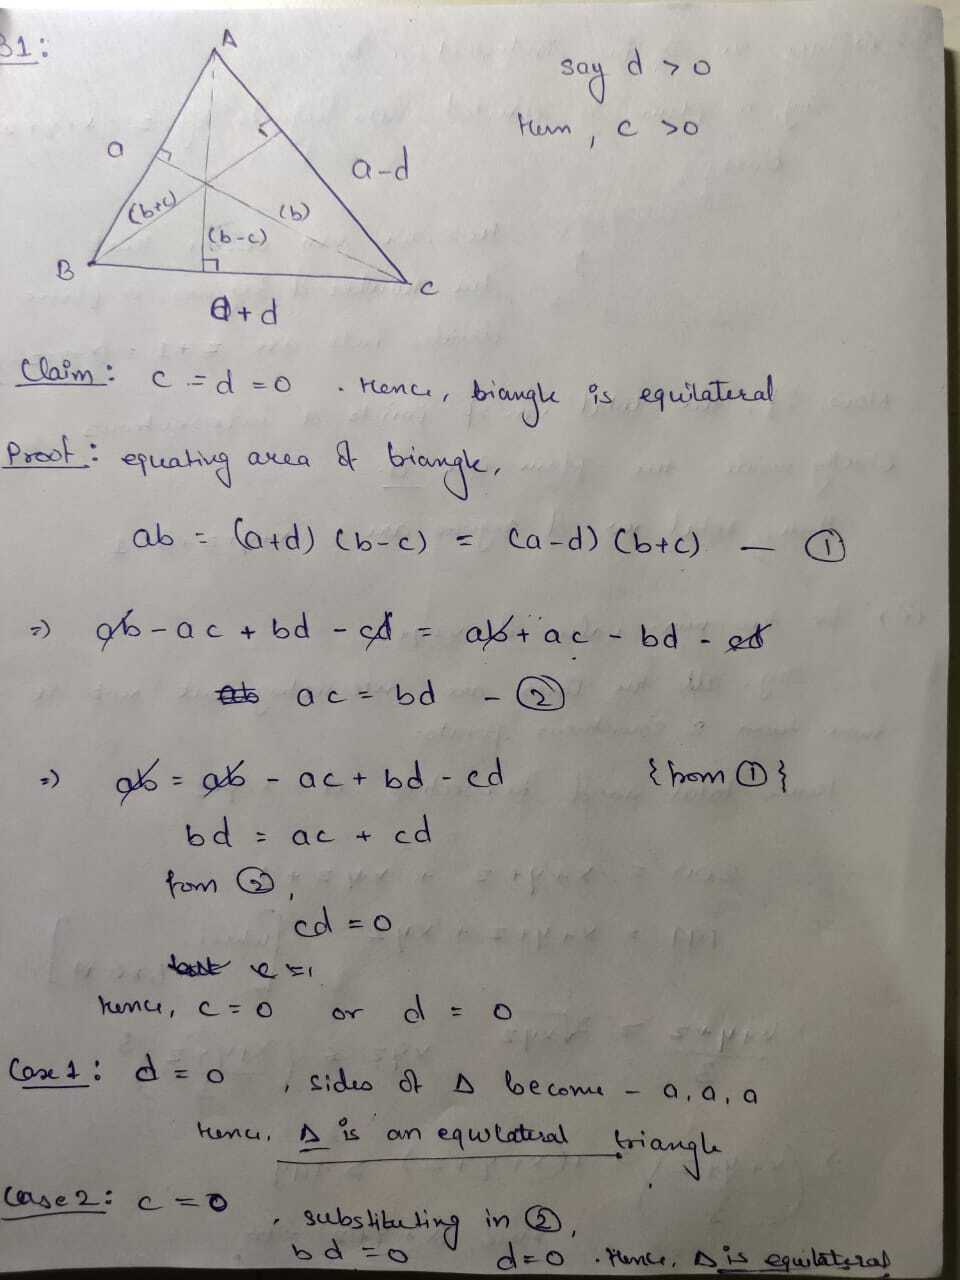 B1:
A
say d > 0
then, c > 0
a
a-d
(b+c)
(b)
(b-c)
B
C
a+d
Claim: c = d = 0 . Hence, triangle is equilateral
Proof: equating area of triangle,
ab = (a+d) (b-c) = (a-d) (b+c) — ①
=) ab - ac + bd - cd = ab + ac - bd - cd
ac = bd - ②
=) ab = ab - ac + bd - cd {from ①}
bd = ac + cd
from ②,
cd = 0
Hence, c = 0 or d = 0
Case 1: d = 0 , sides of Δ become - a, a, a
Hence, Δ is an equilateral triangle
Case 2: c = 0 , substituting in ②,
bd = 0 d = 0 . Hence, Δ is equilateral